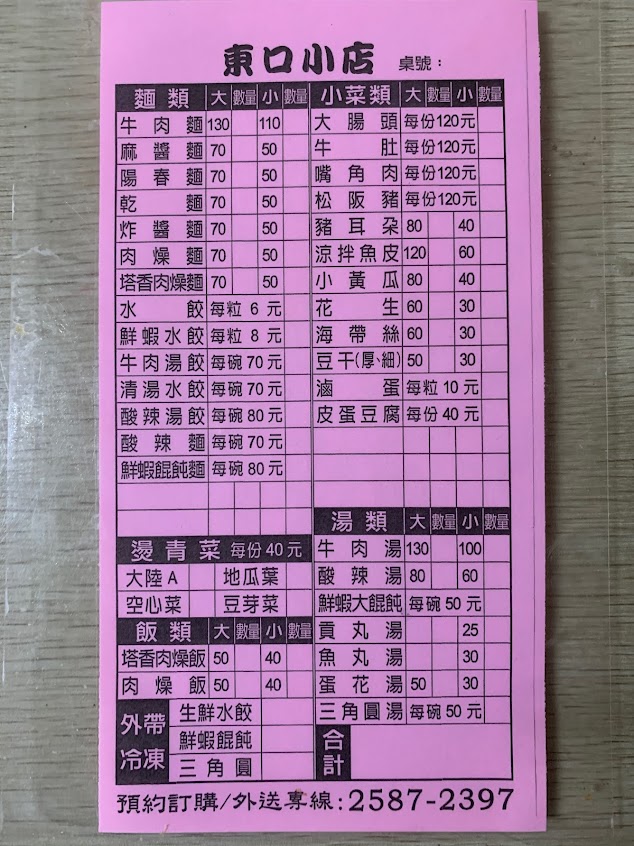 東口小店 桌號：
麵類 大 數量 小 數量
牛肉麵 130 110
麻醬麵 70 50
陽春麵 70 50
乾麵 70 50
炸醬麵 70 50
肉燥麵 70 50
塔香肉燥麵 70 50
水餃 每粒 6 元
鮮蝦水餃 每粒 8 元
牛肉湯餃 每碗 70 元
清湯水餃 每碗 70 元
酸辣湯餃 每碗 80 元
酸辣麵 每碗 70 元
鮮蝦餛飩麵 每碗 80 元
燙青菜 每份 40 元
大陸A 地瓜葉
空心菜 豆芽菜
飯類 大 數量 小 數量
塔香肉燥飯 50 40
肉燥飯 50 40
外帶冷凍
生鮮水餃
鮮蝦餛飩
三角圓
小菜類 大 數量 小 數量
大腸頭 每份120元
牛肚 每份120元
嘴角肉 每份120元
松阪豬 每份120元
豬耳朵 80 40
涼拌魚皮 120 60
小黃瓜 80 40
花生 60 30
海帶絲 60 30
豆干(厚、細) 50 30
滷蛋 每粒 10 元
皮蛋豆腐 每份 40 元
湯類 大 數量 小 數量
牛肉湯 130 100
酸辣湯 80 60
鮮蝦大餛飩 每碗 50 元
貢丸湯 25
魚丸湯 30
蛋花湯 50 30
三角圓湯 每碗 50 元
合計
預約訂購/外送專線:2587-2397